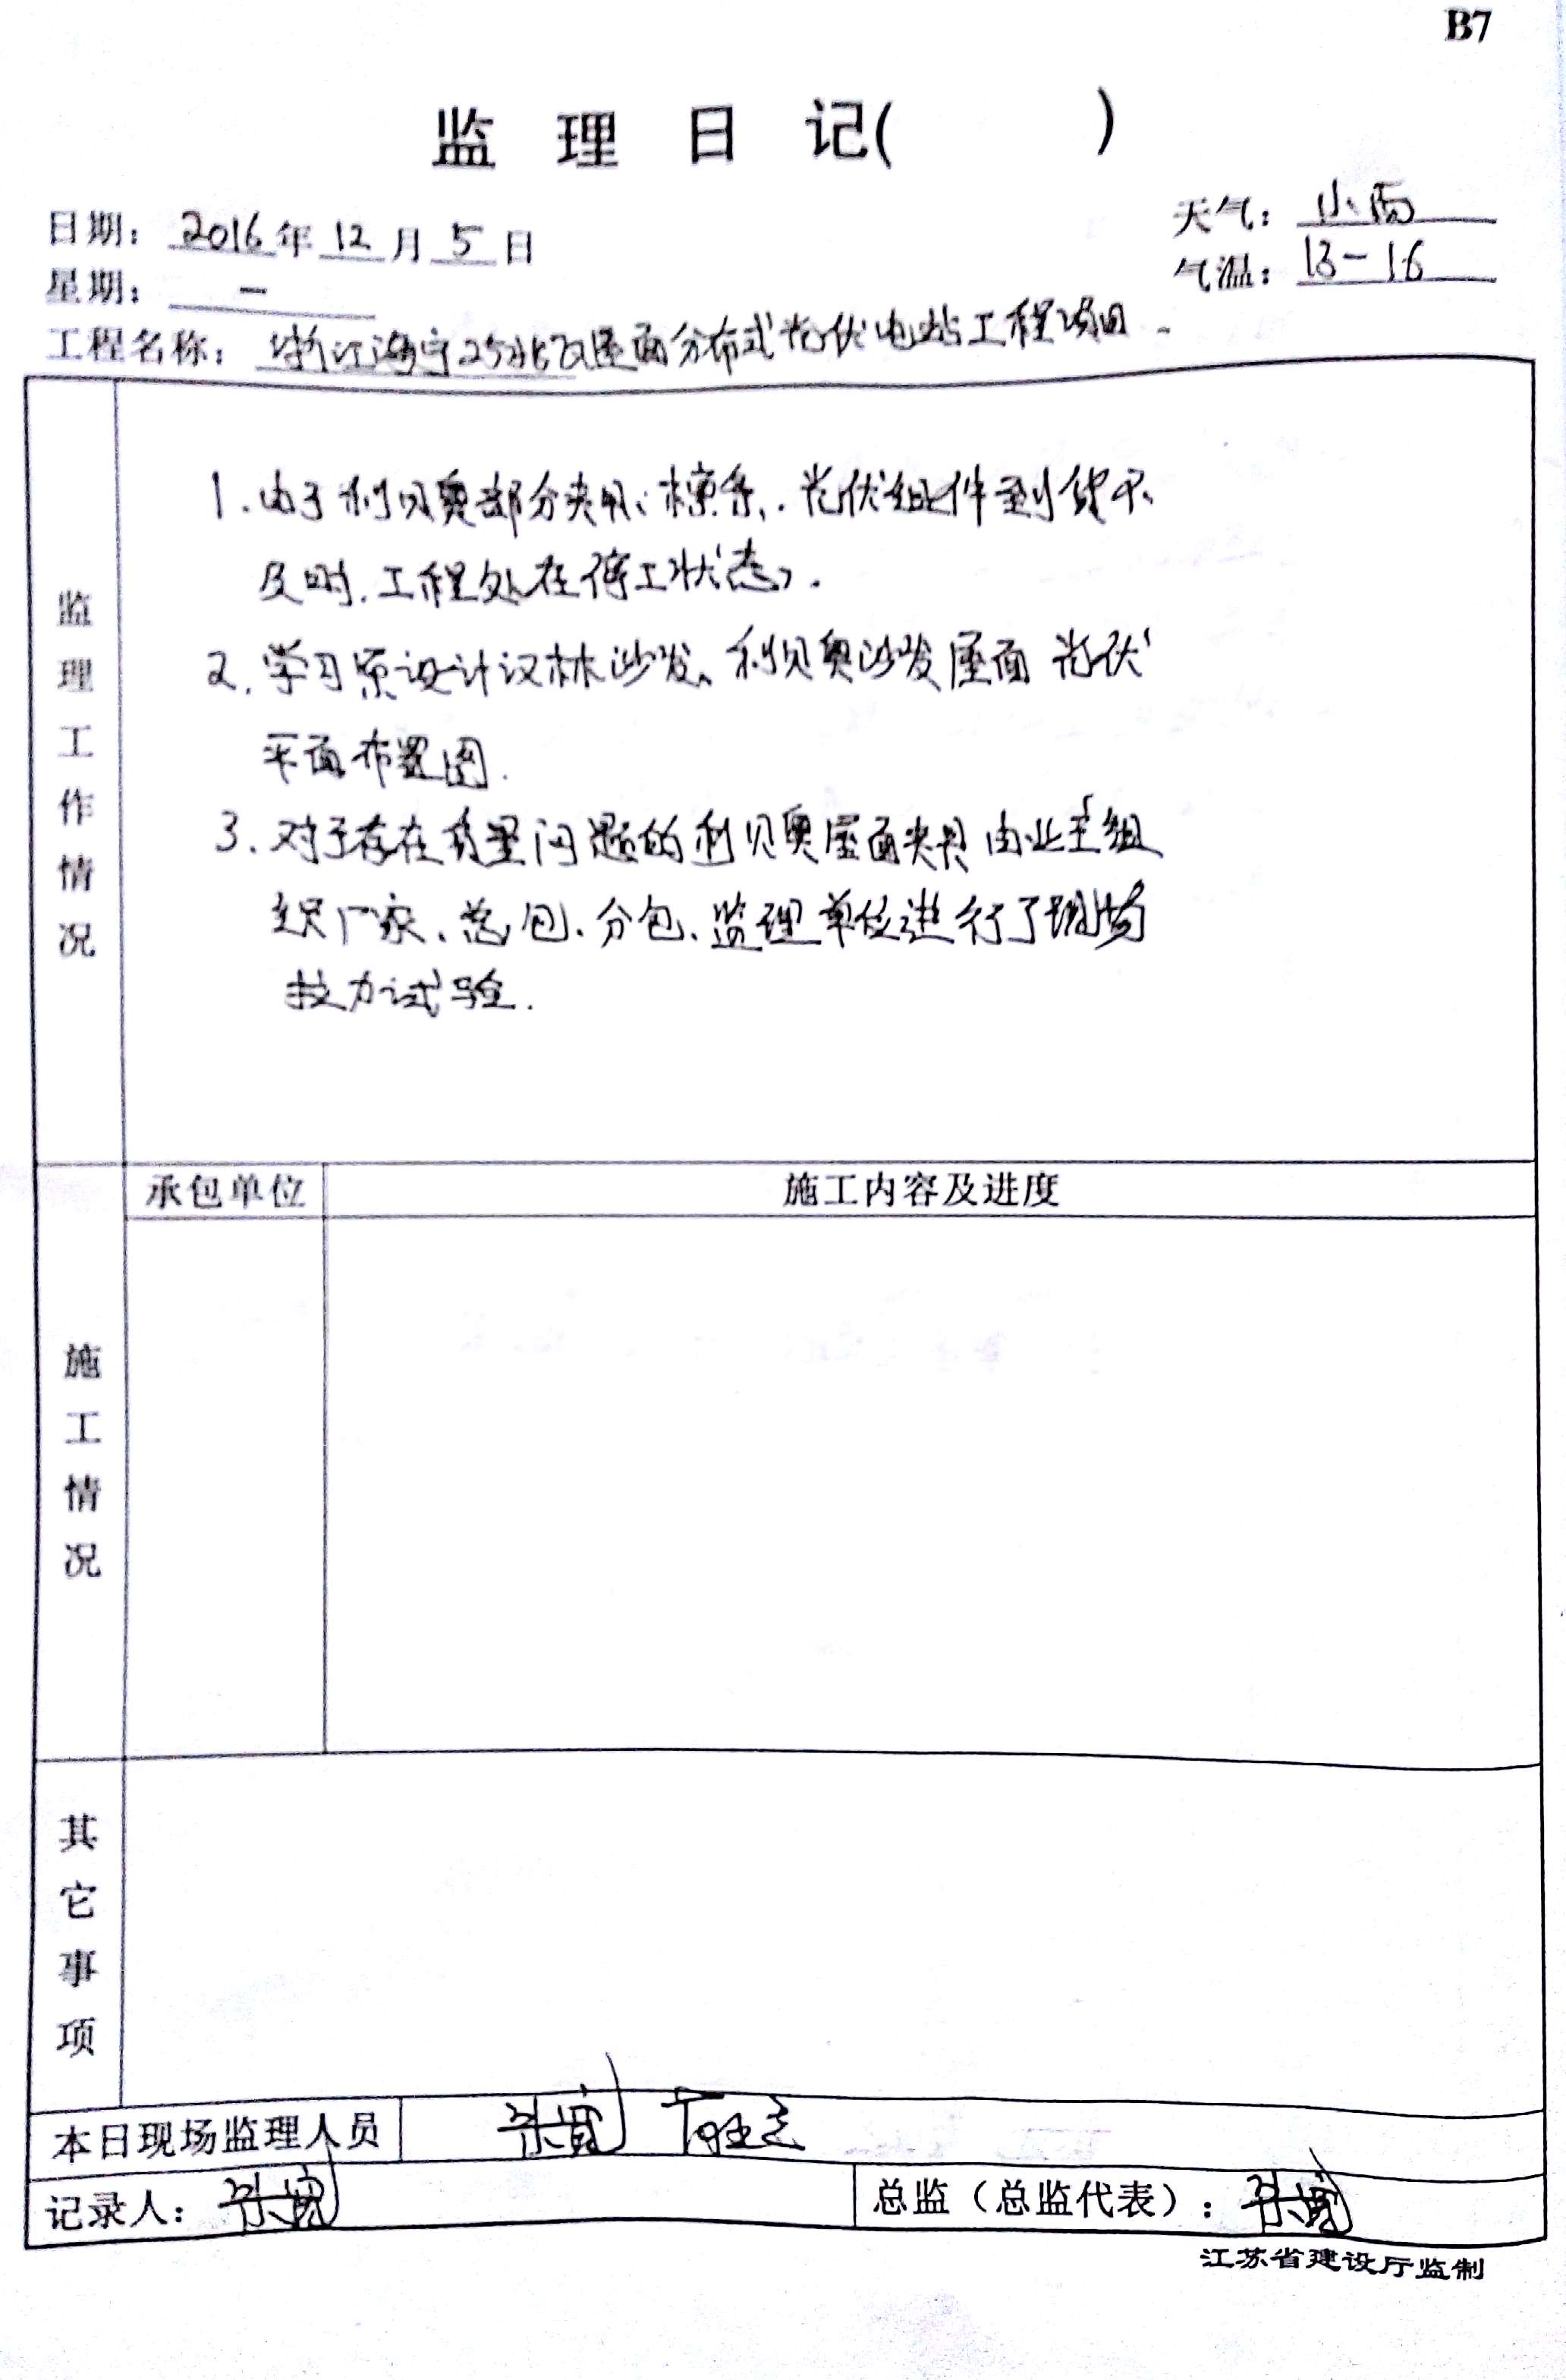 B7
监 理 日 记( )
日期：2016年12月5日
天气：小雨
星期：一
气温：13-16
工程名称：浙江海宁25兆瓦屋面分布式光伏电站工程项目
监理工作情况
1.由于利贝奥部分夹具、檩条、光伏组件到货不
及时.工程处在停工状态.
2.学习原设计汉林沙发、利贝奥沙发屋面光伏
平面布置图.
3.对于存在质量问题的利贝奥屋面夹具由业主组
织厂家、总包、分包、监理单位进行了现场
拉力试验.
承包单位
施工内容及进度
施工情况
其它事项
本日现场监理人员
记录人：
总监（总监代表）：
江苏省建设厅监制